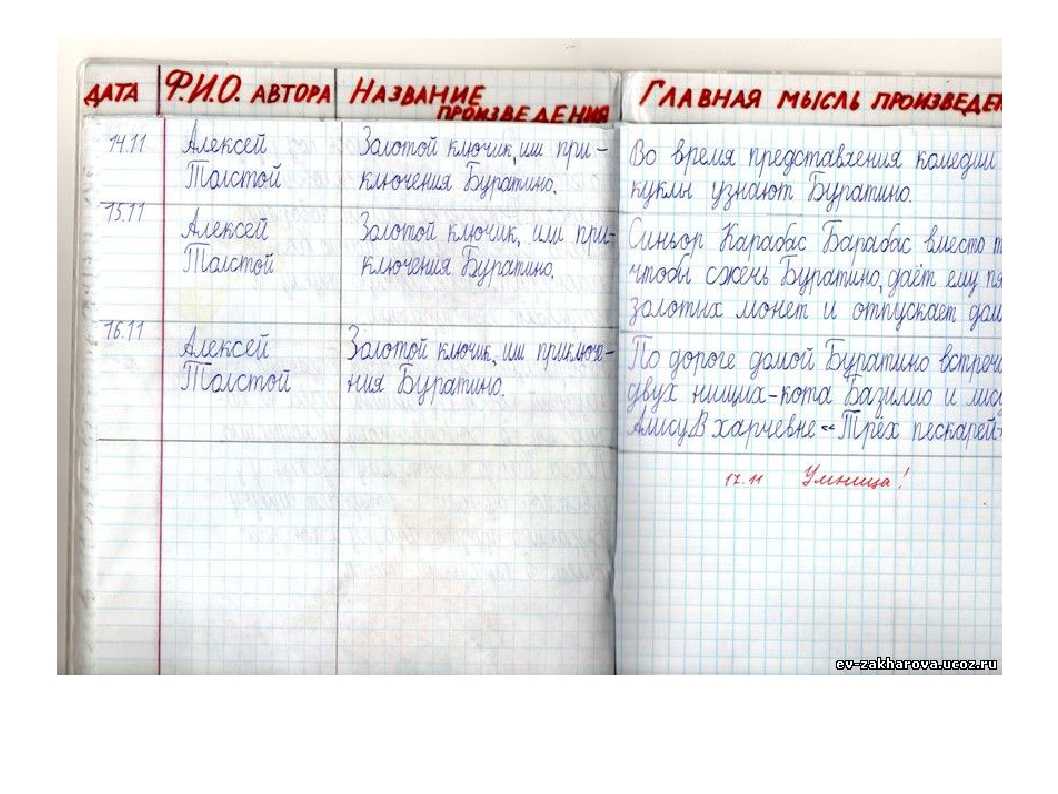 ДАТА Ф.И.О. АВТОРА НАЗВАНИЕ ПРОИЗВЕДЕНИЯ ГЛАВНАЯ МЫСЛЬ
14.11
Алексей
Толстой
Золотой ключик, или при-
ключения Буратино.
Во время представления комедии
куклы узнают Буратино.
15.11
Алексей
Толстой
Золотой ключик, или при-
ключения Буратино.
Синьор Карабас Барабас вместо
чтобы сжечь Буратино, даёт ему
золотых монет и отпускает
16.11
Алексей
Толстой
Золотой ключик, или приключе-
ния Буратино.
По дороге домой Буратино
двух нищих-кота Базилио и
Алису. В харчевне "Трёх пескарей"
17.11 Умница!
ev-zakharova.ucoz.ru